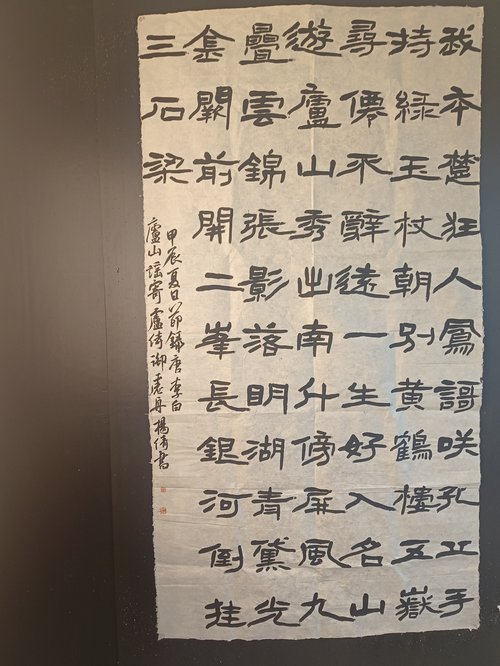 我本楚狂人鳳謌咲孔丘手
持綠玉杖朝別黃鶴樓五嶽
尋僊不辭遠一生好入名山
遊廬山秀出南斗傍屏風九
疊雲錦張影落明湖青黛光
金闕前開二峯長銀河倒挂
三石梁
甲辰夏日節錄唐李白
廬山謠寄盧侍御虛舟楊倩書